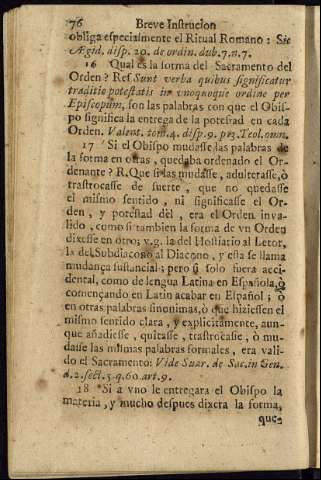 76 Breve Instrucion
obliga especialmente el Ritual Romano: Sic
Ægid. disp. 20. de ordin. dub. 7. n. 7.
16 Qual es la forma del Sacramento del
Orden? Res Sunt verba quibus significatur
traditio potestatis in vnoquoque ordine per
Episcopum, son las palabras con que el Obis-
po significa la entrega de la potestad en cada
Orden. Valent. tom. 4. disp. 9. prz. Teol. onn.
17 Si el Obispo mudasse las palabras de
la forma en otras, quedaba ordenado el Or-
denante? R. Que si las mudasse, adulterasse, ò
trastrocasse de suerte, que no quedasse
el mismo sentido, ni significasse el Or-
den, y potestad dèl, era el Orden inva-
lido, como si tambien la forma de vn Orden
dixesse en otro; v.g. la del Hostiario al Letor,
la del Subdiacono al Diacono, y esta se llama
mudança sustancial; pero si solo fuera acci-
dental, como de lengua Latina en Española, ò
començando en Latin acabar en Español; ò
en otras palabras sinonimas, ò que hiziessen el
mismo sentido clara, y explicitamente, aun-
que añadiesse, quitasse, trastrocasse, ò mu-
dasse las mismas palabras formales, era vali-
do el Sacramento: Vide Suar. de Sac. in Gen.
d. 2. sect. 5. q. 60. art. 9.
18 Si a vno le entregara el Obispo la
materia, y mucho despues dixera la forma,
que-